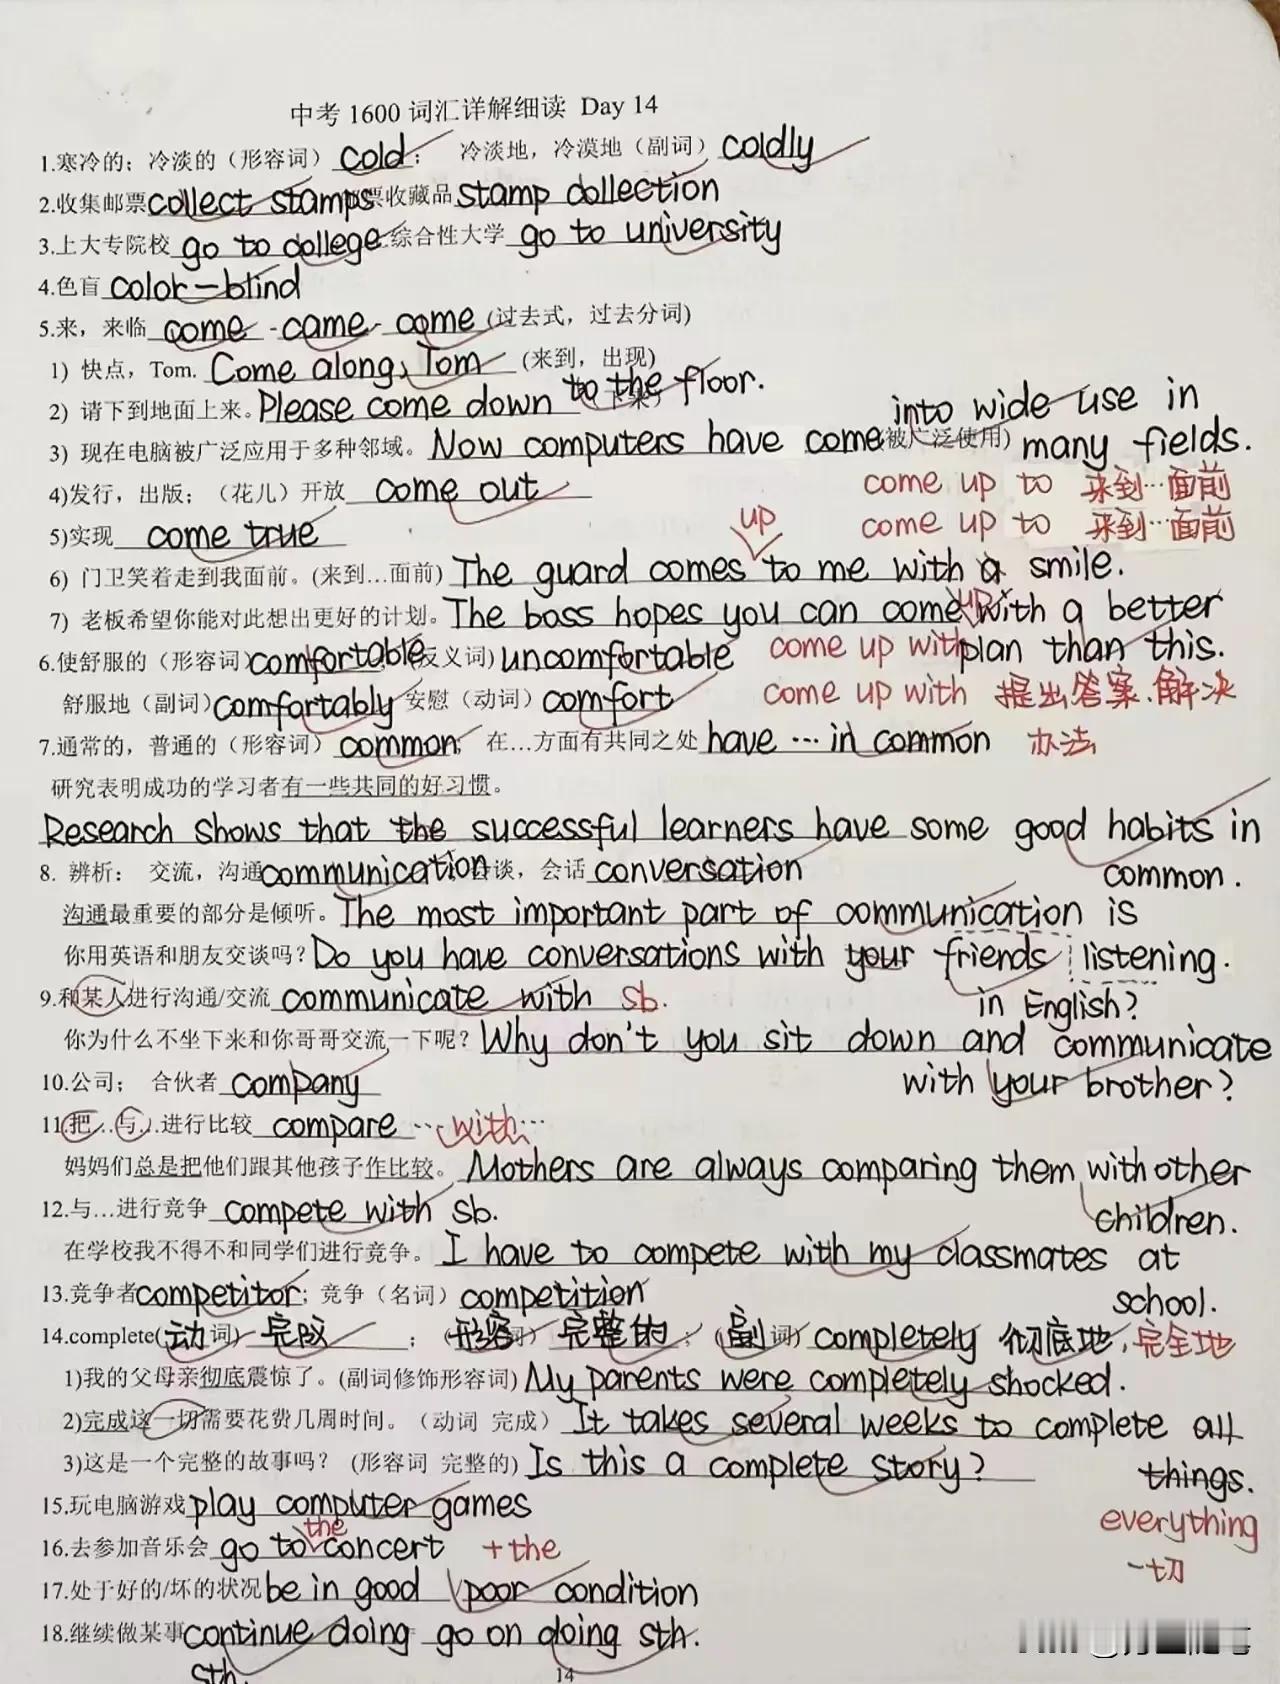 中考 1600 词汇详解细读 Day 14
1.寒冷的；冷淡的（形容词） cold ； 冷淡地，冷漠地（副词） coldly
2.收集邮票 collect stamps 票收藏品 stamp collection
3.上大专院校 go to college 综合性大学 go to university
4.色盲 color-blind
5.来，来临 come - came - come (过去式，过去分词)
1) 快点，Tom. Come along, Tom (来到，出现)
2) 请下到地面上来。Please come down to the floor. (下来)
3) 现在电脑被广泛应用于多种邻域。Now computers have come into wide use in many fields. (被广泛使用)
4)发行，出版；（花儿）开放 come out come up to 来到…面前
5)实现 come true come up to 来到…面前
6) 门卫笑着走到我面前。(来到…面前) The guard comes up to me with a smile.
7) 老板希望你能对此想出更好的计划。The boss hopes you can come up with a better plan than this.
6.使舒服的（形容词) comfortable 反义词) uncomfortable come up with
舒服地（副词) comfortably 安慰（动词） comfort come up with 提出答案.解决办法
7.通常的，普通的（形容词） common； 在…方面有共同之处 have … in common
研究表明成功的学习者有一些共同的好习惯。
Research shows that the successful learners have some good habits in common.
8. 辨析： 交流，沟通 communication 谈，会话 conversation
沟通最重要的部分是倾听。The most important part of communication is listening.
你用英语和朋友交谈吗？Do you have conversations with your friends in English?
9.和某人进行沟通/交流 communicate with sb.
你为什么不坐下来和你哥哥交流一下呢？Why don't you sit down and communicate with your brother?
10.公司； 合伙者 company
11.把…与…进行比较 compare … with …
妈妈们总是把他们跟其他孩子作比较。Mothers are always comparing them with other children.
12.与…进行竞争 compete with sb.
在学校我不得不和同学们进行竞争。I have to compete with my classmates at school.
13.竞争者 competitor；竞争（名词） competition
14.complete(动词) 完成 ；（形容词） 完整的；（副词） completely 彻底地，完全地
1)我的父母亲彻底震惊了。(副词修饰形容词) My parents were completely shocked.
2)完成这一切需要花费几周时间。（动词 完成） It takes several weeks to complete all things.
3)这是一个完整的故事吗？ (形容词 完整的) Is this a complete story?
15.玩电脑游戏 play computer games everything
16.去参加音乐会 go to the concert +the 一切
17.处于好的/坏的状况 be in good \poor condition
18.继续做某事 continue doing sth. go on doing sth.
14